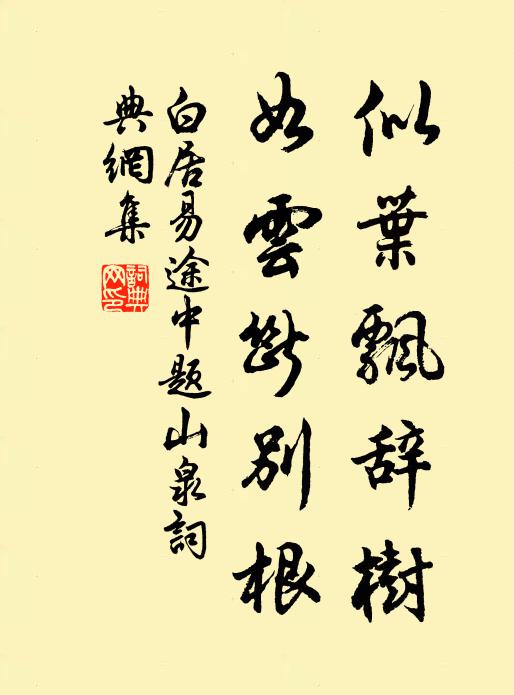 似葉飄辞樹
如雲斷別根
白居易途中題山泉詞
典網集
詞典網印